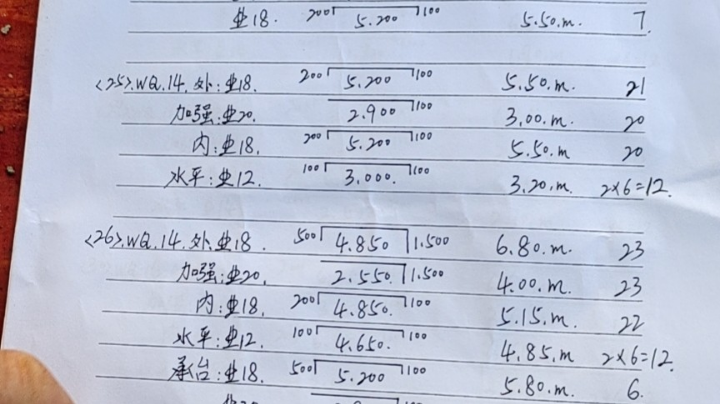 业18. 200 5.200 100 5.50.m. 7.
<25>.WQ.14.外:业18. 200 5.200 100 5.50.m. 21
加强:业20. 2.900 100 3.00.m. 20
内:业18. 200 5.200 100 5.50.m 20
水平:业12. 100 3.000. 100 3.20.m. 2×6=12.
<26>.WQ.14.外.业18. 500 4.850 1.500 6.80.m. 23
加强:业20. 2.550. 1.500 4.00.m. 23
内:业18. 200 4.850. 100 5.15.m. 22
水平:业12. 100 4.650. 100 4.85.m 2×6=12.
承台:业18. 500 5.200 100 5.80.m. 6.